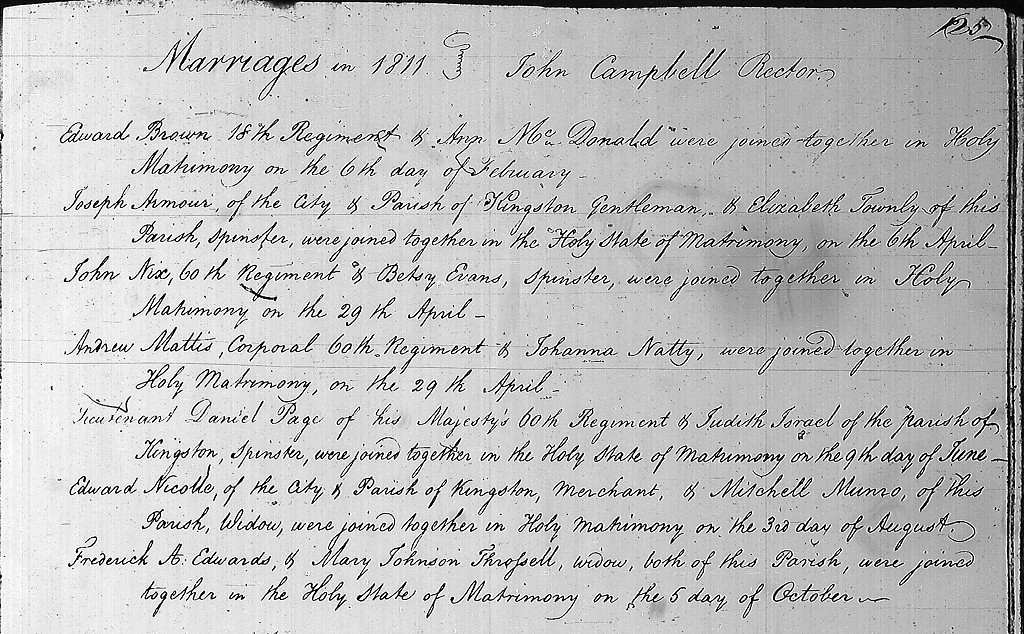 125
Marriages in 1811. John Campbell Rector.
Edward Brown 18th Regiment & Ann Mc Donald were joined together in Holy
Matrimony on the 6th day of February
Joseph Armour, of the City & Parish of Kingston Gentleman, & Elizabeth Townly of this
Parish, Spinster, were joined together in the Holy State of Matrimony, on the 6th April
John Nix, 60th Regiment & Betsy Evans, Spinster, were joined together in Holy
Matrimony on the 29th April
Andrew Mattis, Corporal 60th Regiment & Johanna Natty, were joined together in
Holy Matrimony, on the 29th April
Lieutenant Daniel Page of his Majesty's 60th Regiment & Judith Israel of the Parish of
Kingston, Spinster, were joined together in the Holy State of Matrimony on the 9th day of June
Edward Nicolle, of the City & Parish of Kingston, Merchant, & Mitchell Munro, of this
Parish, Widow, were joined together in Holy Matrimony on the 3rd day of August
Frederick A. Edwards, & Mary Johnson Throssell, widow, both of this Parish, were joined
together in the Holy State of Matrimony on the 5 day of October